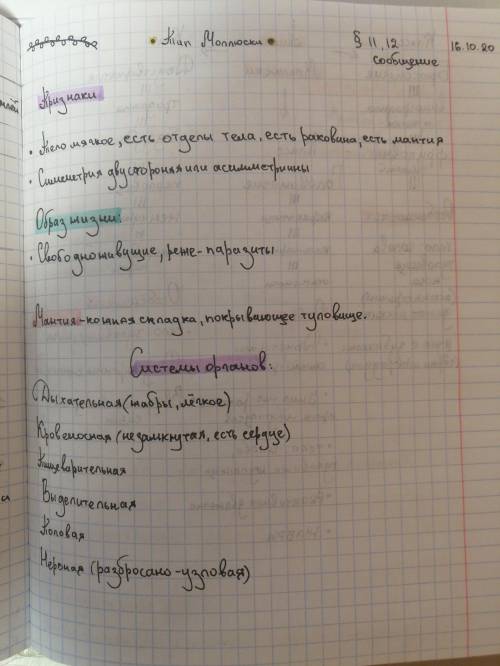 • Тип Моллюски • § 11, 12 16.10.20
сообщение
Признаки
• Тело мягкое, есть отделы тела, есть раковина, есть мантия
• Симметрия двустороняя или асимметричны
Образ жизни:
• Свободноживущие, реже - паразиты
Мантия - кожная складка, покрывающее туловище.
Системы органов:
Дыхательная (жабры, лёгкое)
Кровеносная (незамкнутая, есть сердце)
Пищеварительная
Выделительная
Половая
Нервная (разбросано-узловая)